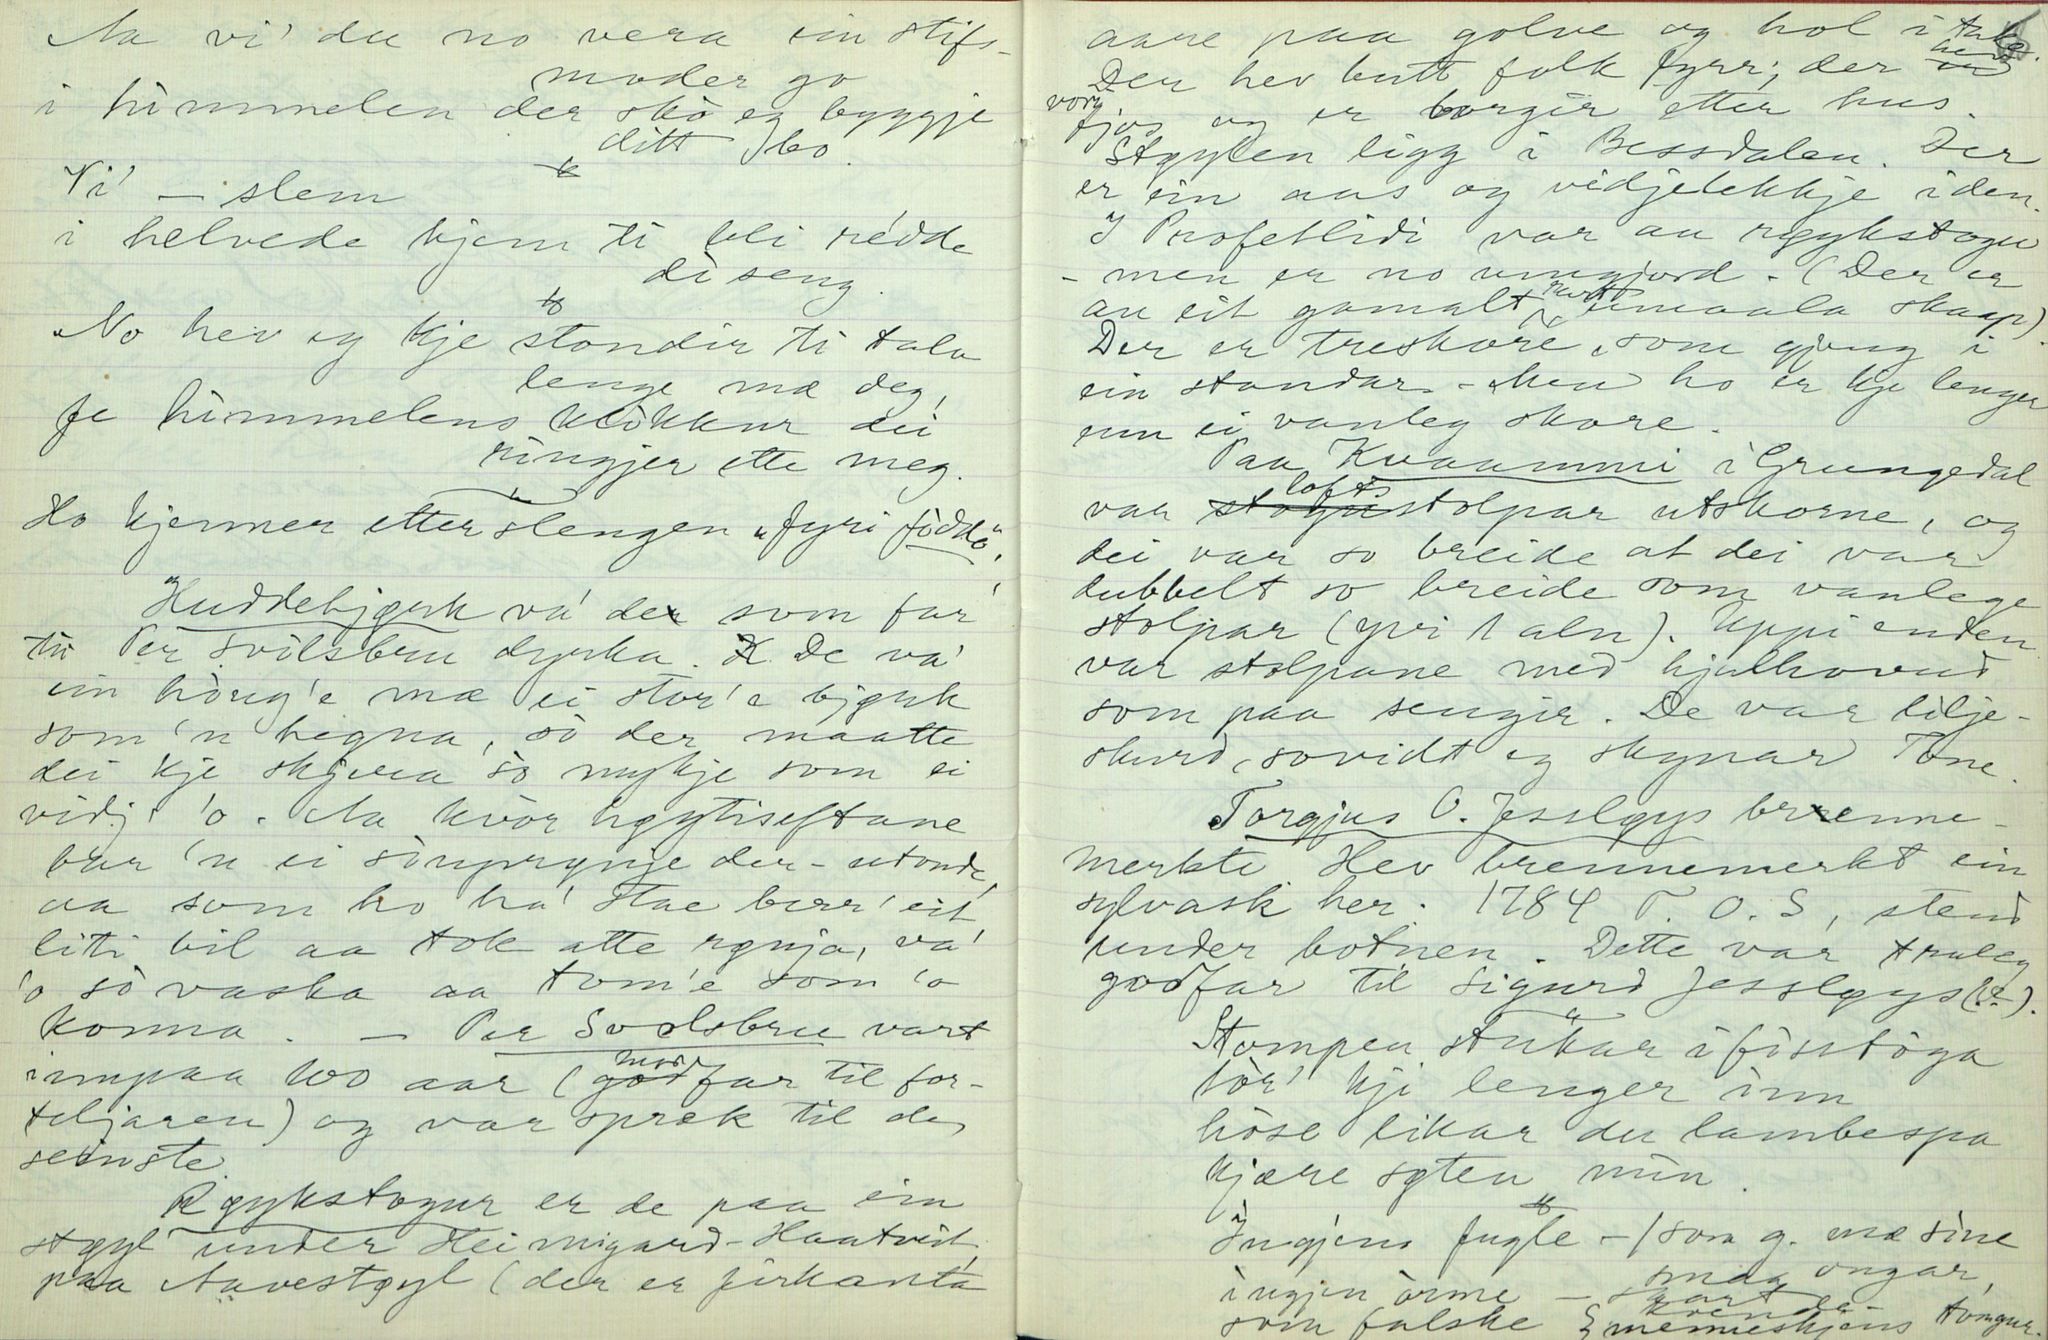 Aa vi' du no vera ein stifs-
moder go
i himmelen der sko eg byggje
ditt bo.
Vi' – slem
i helvede kjem ti bli redde
di seng.
No hev eg kje stondir ti tala
lenge mæ deg,
fe himmelens klokkur dei
ringjer ette meg.
Ho kjenner etter slengen "fyri födde".
Huddebjørk va' der som far
til Per Svilsbru dyrka. De va'
ein haug'e mæ ei stor'e bjørk
som 'n hegna, so der maatte
dei kje skjera so mykje som ei
vidj 'o. Aa kvor høgtiseftane
bar 'n ei sinprynje der - utondé,
aa som ho ha' stae berr' eit
liti bil aa tok atte rynja, va'
'o so vaska aa tom'e som 'o
konna. – Per Svolsbru vart
innpaa 100 aar (mor godfar til for-
teljaren) og var sprek til de
seinste.
Røykstogur er de paa ein
støyl under Heimigard-Haatveit
paa Aavestøyl (der er firkanta
aare paa golve og hol i take.
Der hev butt folk fyrr; der her
vorg
fjos og er borgir etter hus.
Støylen ligg i Bessdalen. Der
er ein aas og vidjelekkje i den.
I Profetlidi var au røykstogu
– men er no umgjord. (Der er
au eit gamalt umaala skaap).
Der er treskore, som gjeng i
ein standar. – Men ho er kje lenger
enn ei vanleg skore.
Paa Kvaammi i Grungedal
var stogu lofts stolpar utskorne, og
dei var so breide at dei var
dubbelt so breide som vanlege
stolpar (yvi 1 aln). Uppi enden
var stolpane med hjulhovud
som paa sengir. De var lilje-
skurd, sovidt eg skynar Tone.
Torgjus O. Jessløys brenne-
merkte Hev brennemerkt ein
sylvask her. 1784 T. O. S, stend
under botnen. Dette var truleg
godfar til Sigurd Jessløys (?).
Stompen stukar i fisstöga
tör' kji lenger inn
höse likar du lambespa
kjære søten min.
Ingjen fugle – (som g. mæ sine
smaa ongar,
ingjen orme – svart
som falske menneskjens tongur.